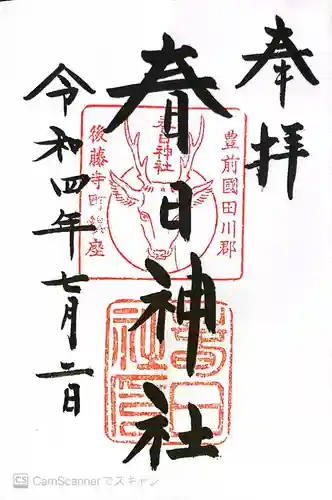 奉拝
春日神社
令和四年七月二日
豊前國田川郡
春日神社
後藤寺町鎮座
春日
社印
CS CamScannerでスキャン